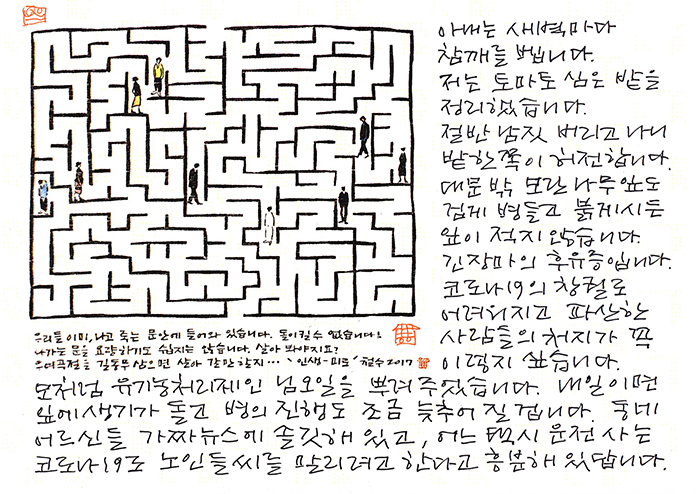 아내는 새벽마다
참깨를 벱니다.
저는 토마토 심은 밭을
정리했습니다.
절반 남짓 버리고 나니
밭 한쪽이 허전합니다.
대문 밖 모란나무 잎도
검게 병들고 붉게 시든
잎이 적지 않습니다.
긴 장마의 후유증입니다.
코로나19의 창궐로
어려워지고 파산한
사람들의 처지가 꼭
이렇지 싶습니다.
모처럼 유기농처리제인 님오일을 뿌려주었습니다. 내일이면
잎에 생기가 돌고 병의 진행도 조금 늦추어 질겁니다. 동네
어르신들 가짜뉴스에 솔깃해 있고, 어느 택시 운전사는
코로나19로 노인들 씨를 말리려고 한다고 흥분해 있답니다.
우리들 이미, 나고 죽는 문안에 들어와 있습니다. 돌이킬 수 없습니다!
나가는 문을 요량하기도 쉽지는 않습니다. 살아 봐야지요?
우여곡절을 길동무 삼으면 살아 갈만 할지… '인생-미로' 철수 2017